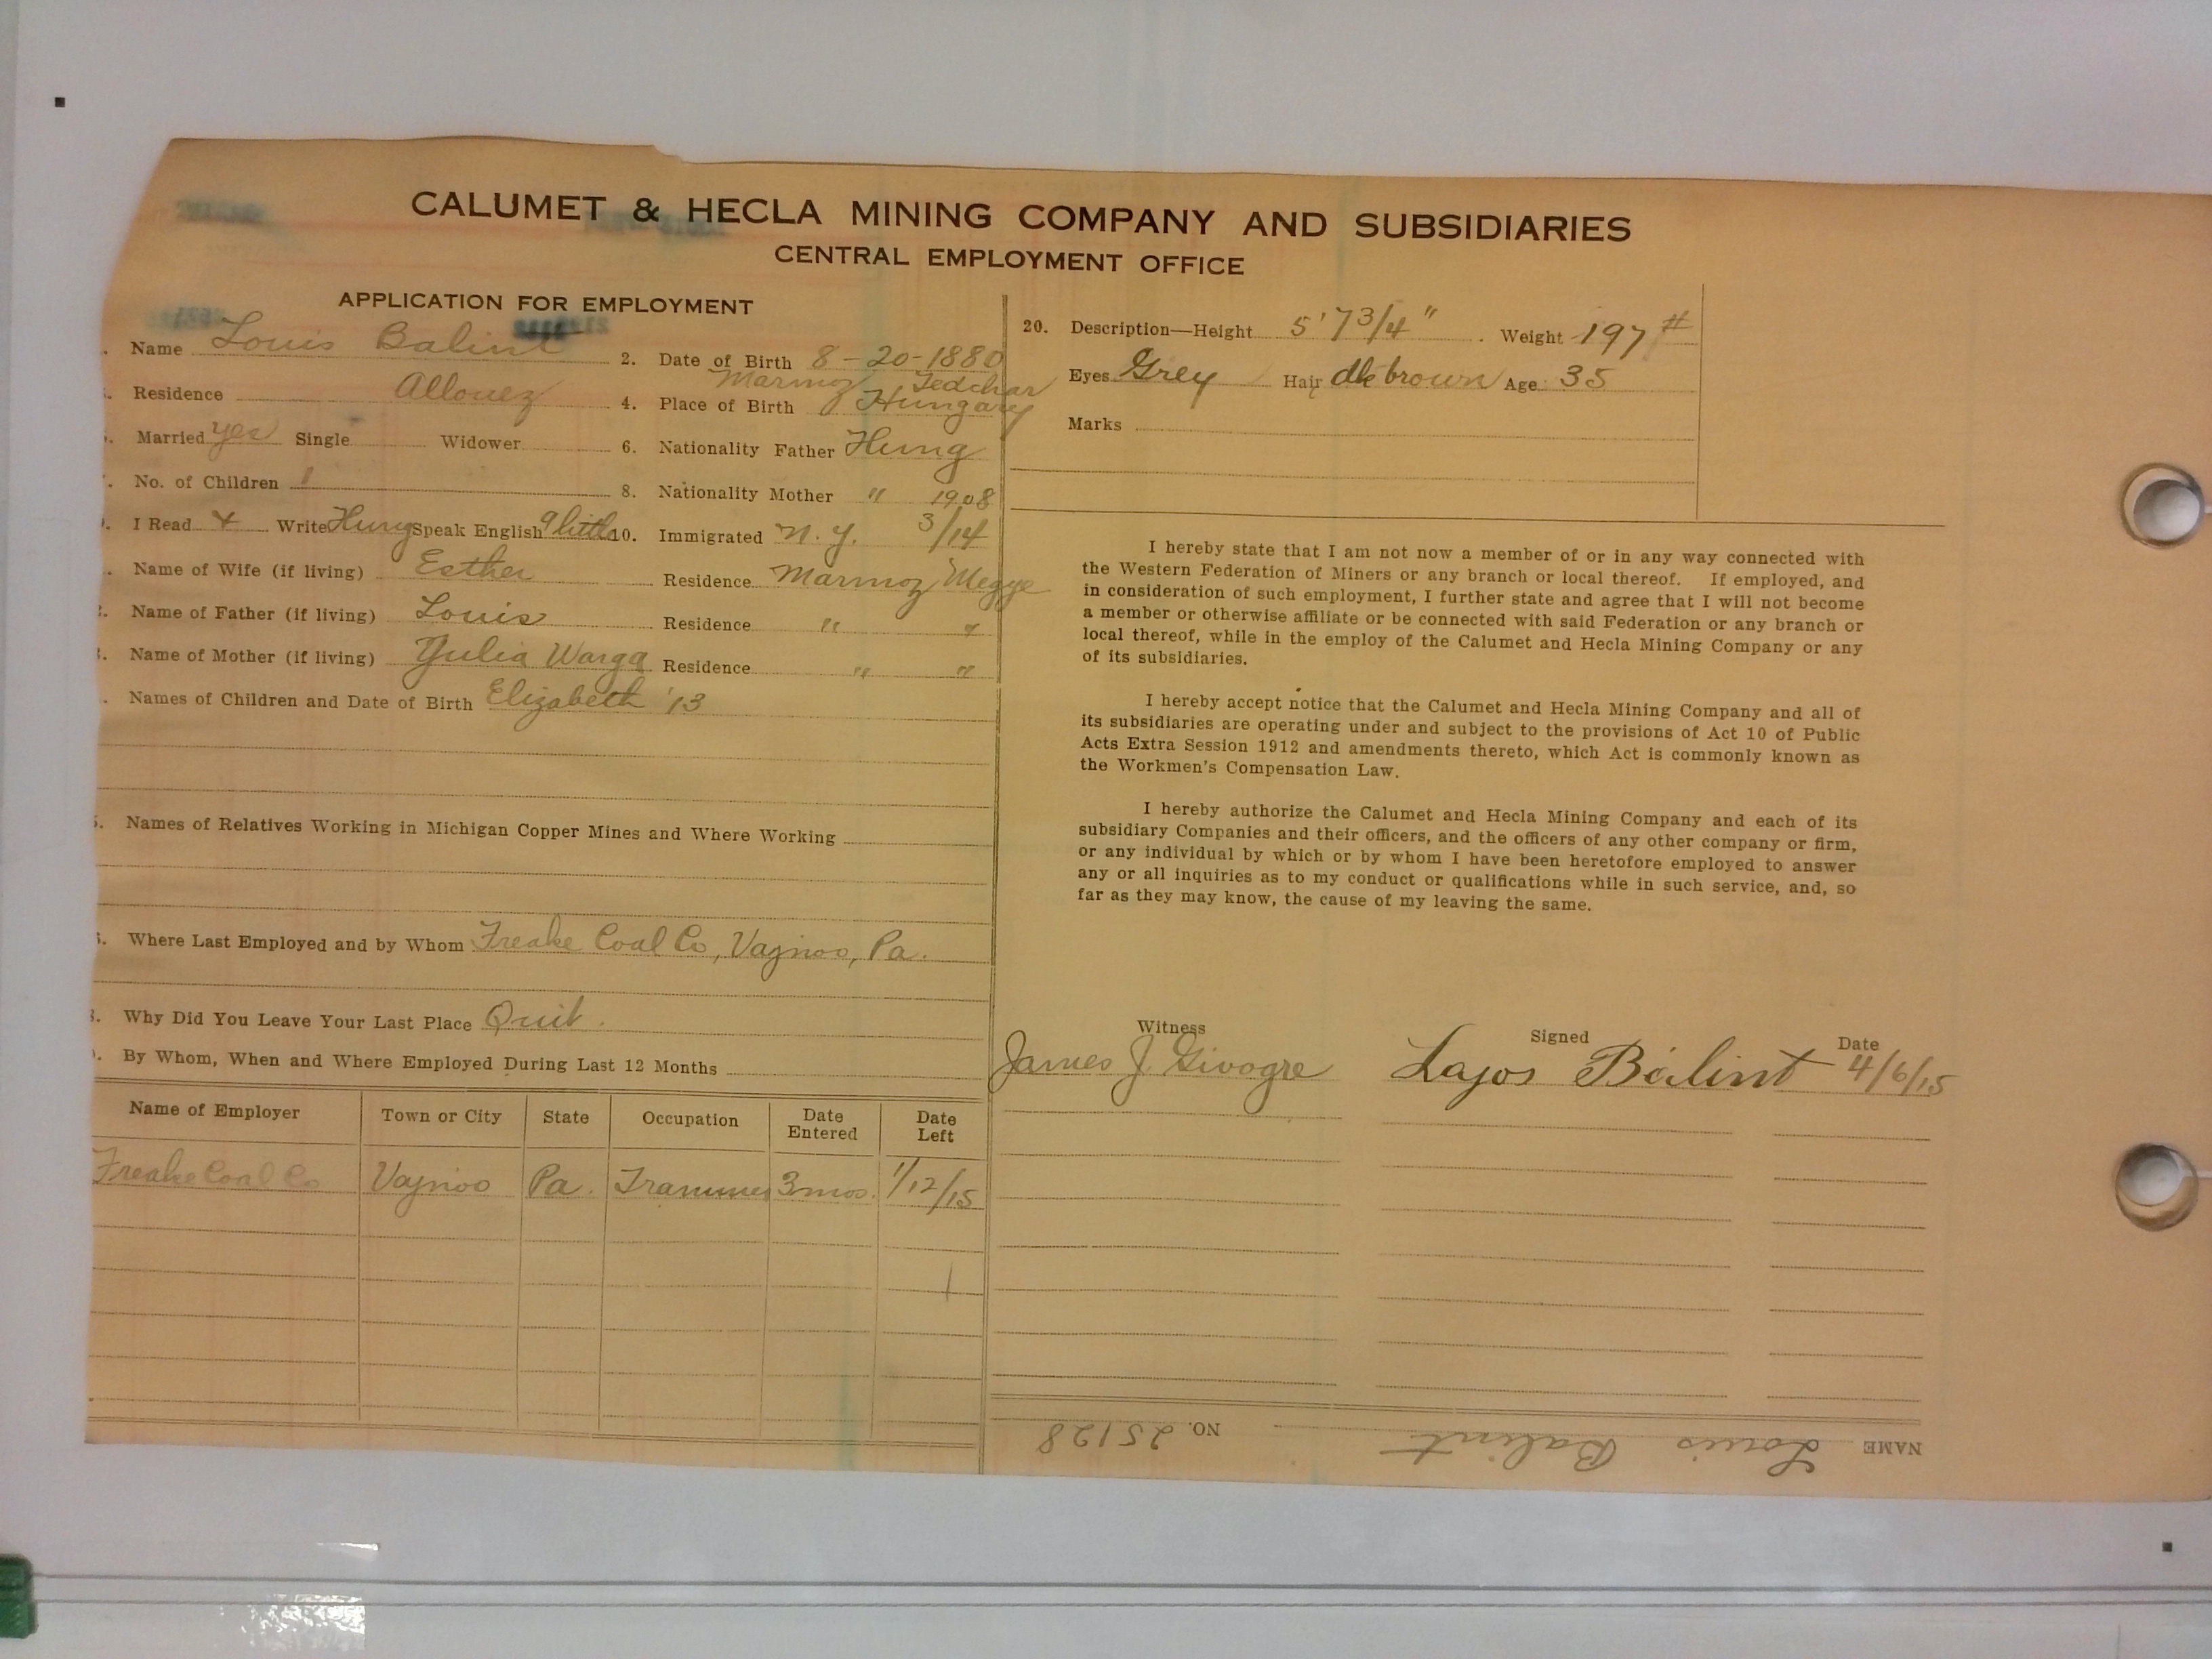 CALUMET & HECLA MINING COMPANY AND SUBSIDIARIES
CENTRAL EMPLOYMENT OFFICE
APPLICATION FOR EMPLOYMENT
Name Louis Balint 2. Date of Birth 8-20-1880
Residence Allouez 4. Place of Birth Marmoz Hungary
Married yes Single Widower 6. Nationality Father Hung
No. of Children 1 8. Nationality Mother " 1908
I Read + Write Hung Speak English a little 10. Immigrated N.Y. 3/14
Name of Wife (if living) Esther Residence Marmoz Megye
Name of Father (if living) Louis Residence " "
Name of Mother (if living) Yulia Warga Residence " "
Names of Children and Date of Birth Elizabeth '13
Names of Relatives Working in Michigan Copper Mines and Where Working
Where Last Employed and by Whom Freake Coal Co, Vajnoo, Pa.
Why Did You Leave Your Last Place Quit.
By Whom, When and Where Employed During Last 12 Months
Name of Employer Town or City State Occupation Date Entered Date Left
Freake Coal Co Vajnoo Pa. Trammer 3 mos. 1/12/15
20. Description—Height 5' 7 3/4" Weight 197 #
Eyes Grey Hair dk brown Age 35
Marks
I hereby state that I am not now a member of or in any way connected with
the Western Federation of Miners or any branch or local thereof. If employed, and
in consideration of such employment, I further state and agree that I will not become
a member or otherwise affiliate or be connected with said Federation or any branch or
local thereof, while in the employ of the Calumet and Hecla Mining Company or any
of its subsidiaries.
I hereby accept notice that the Calumet and Hecla Mining Company and all of
its subsidiaries are operating under and subject to the provisions of Act 10 of Public
Acts Extra Session 1912 and amendments thereto, which Act is commonly known as
the Workmen's Compensation Law.
I hereby authorize the Calumet and Hecla Mining Company and each of its
subsidiary Companies and their officers, and the officers of any other company or firm,
or any individual by which or by whom I have been heretofore employed to answer
any or all inquiries as to my conduct or qualifications while in such service, and, so
far as they may know, the cause of my leaving the same.
Witness Signed Date
James J. Lajos Bálint 4/6/15
NAME Louis Balint NO. 25128